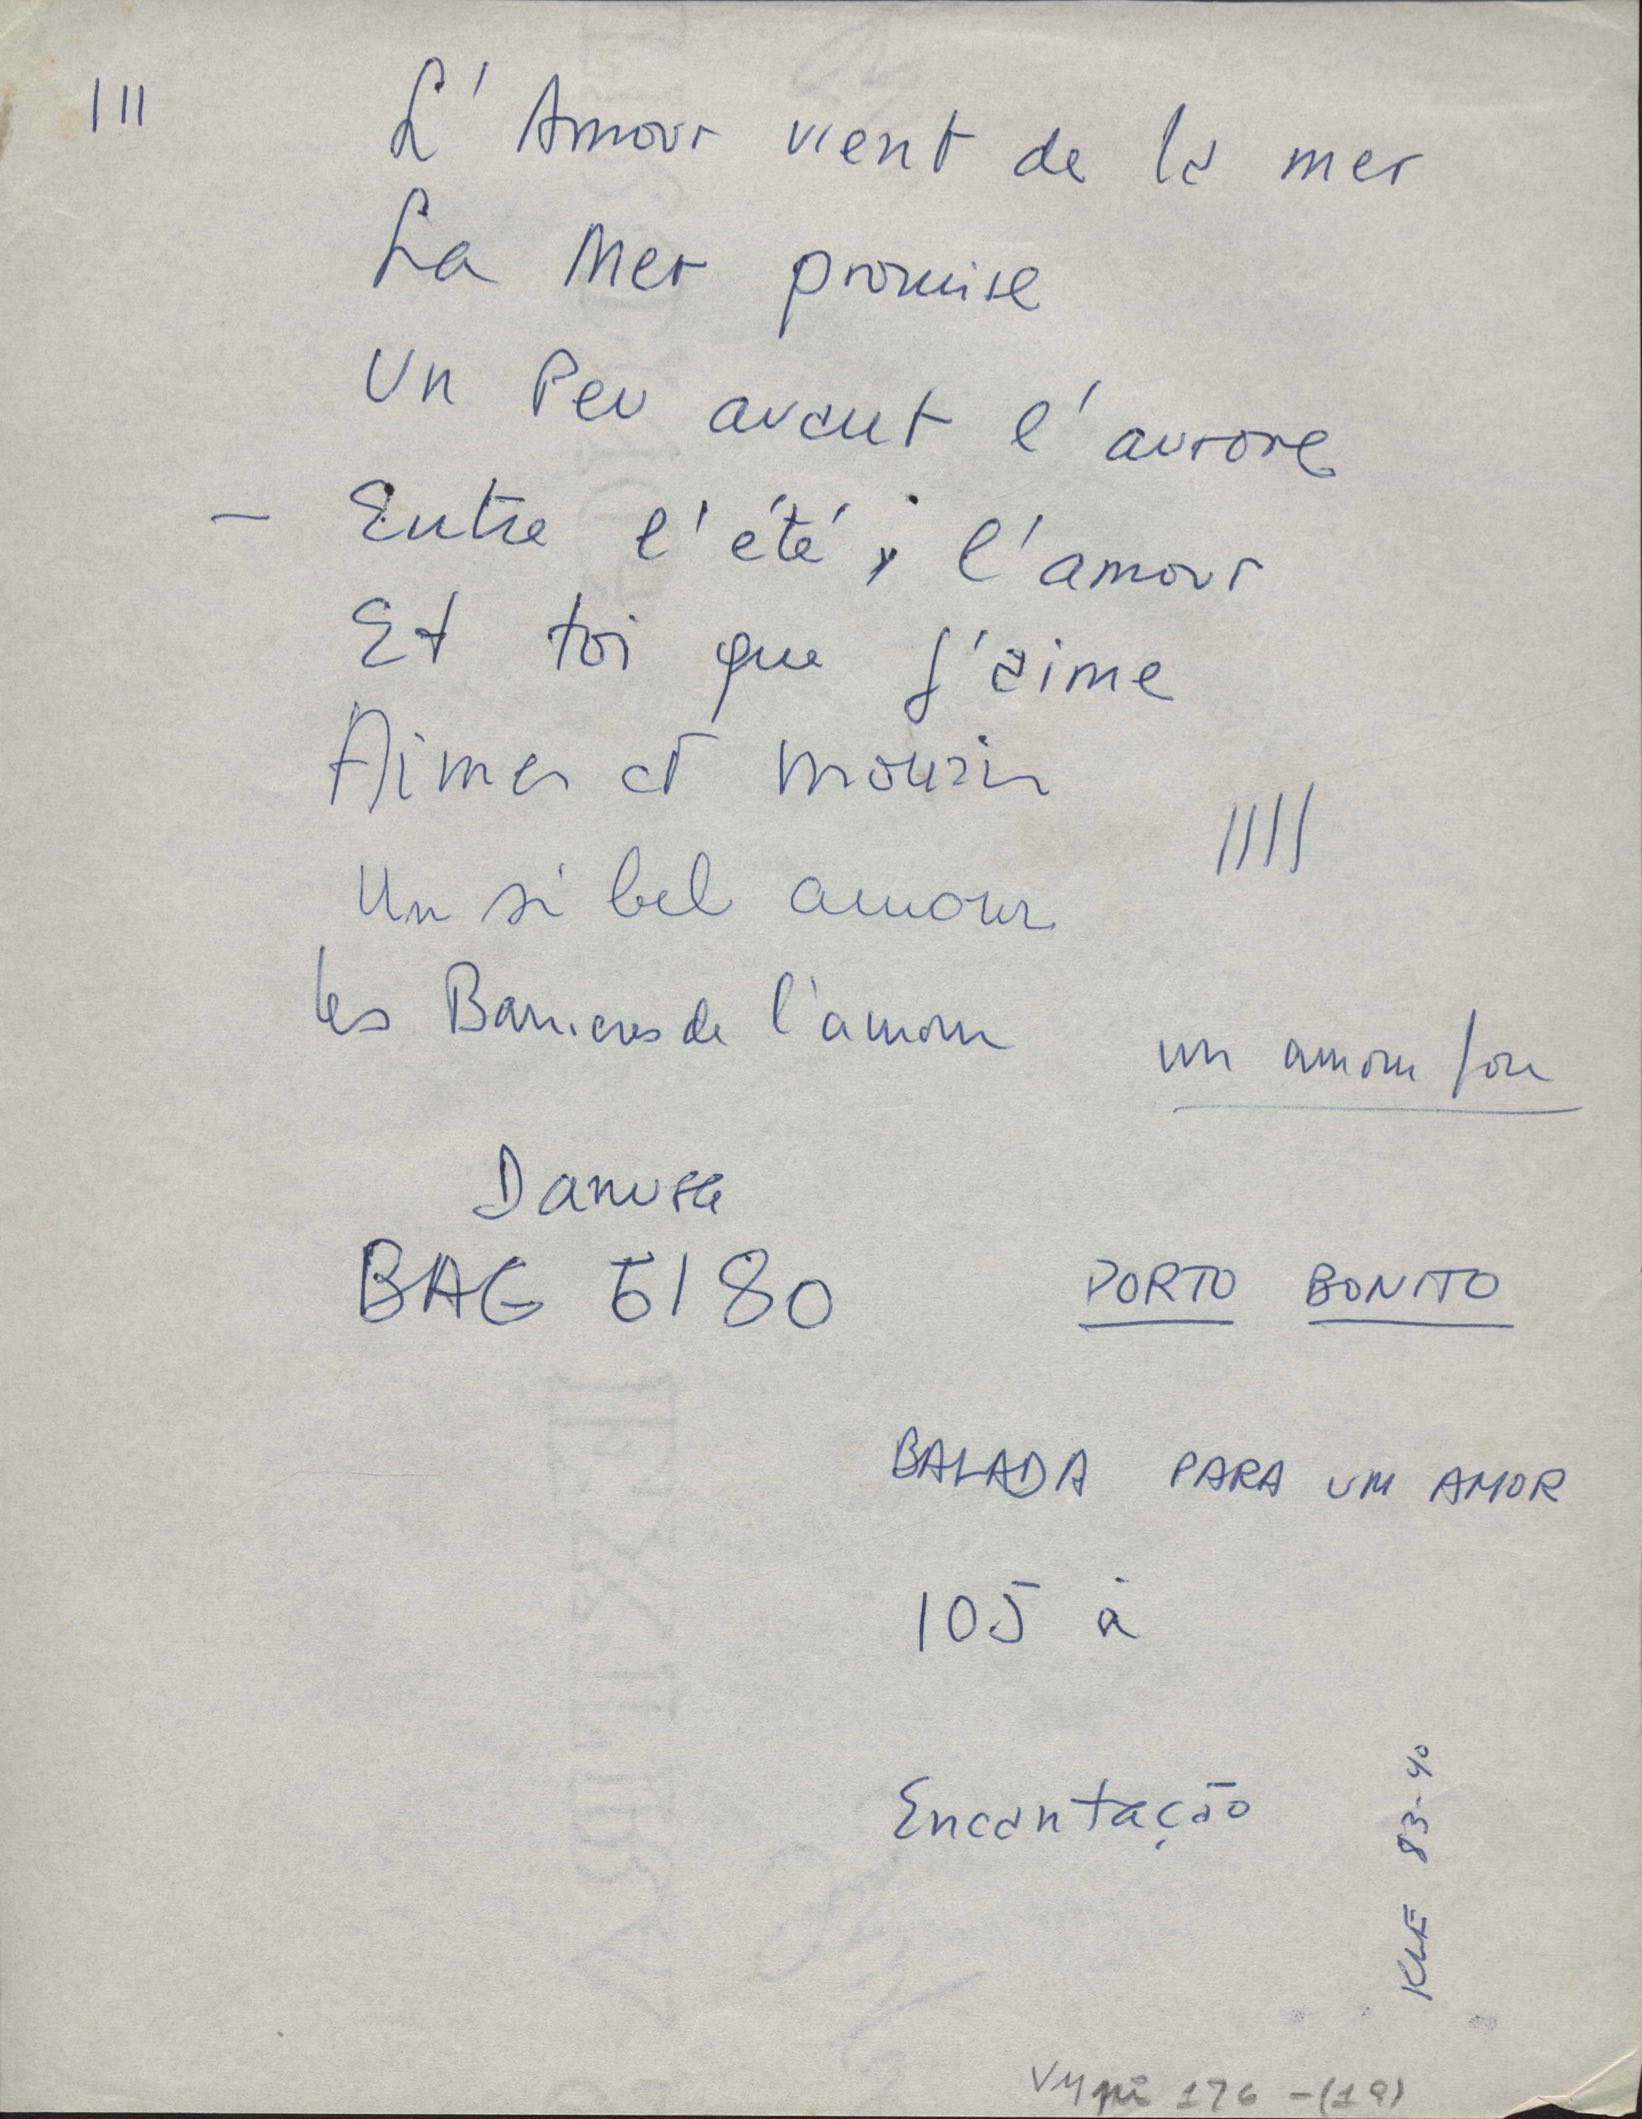 III
L'Amour vient de la mer
La Mer promise
Un Peu avant l'aurore
– Entre l'été, l'amour
Et toi que j'aime
Aimer et mourir
IIII
Un si bel amour
Les Barrieres de l'amour
un amour fou
BAG 5180
PORTO BONITO
BALADA PARA UM AMOR
105 à
Encantação
KLE 83-40
176 -(19)